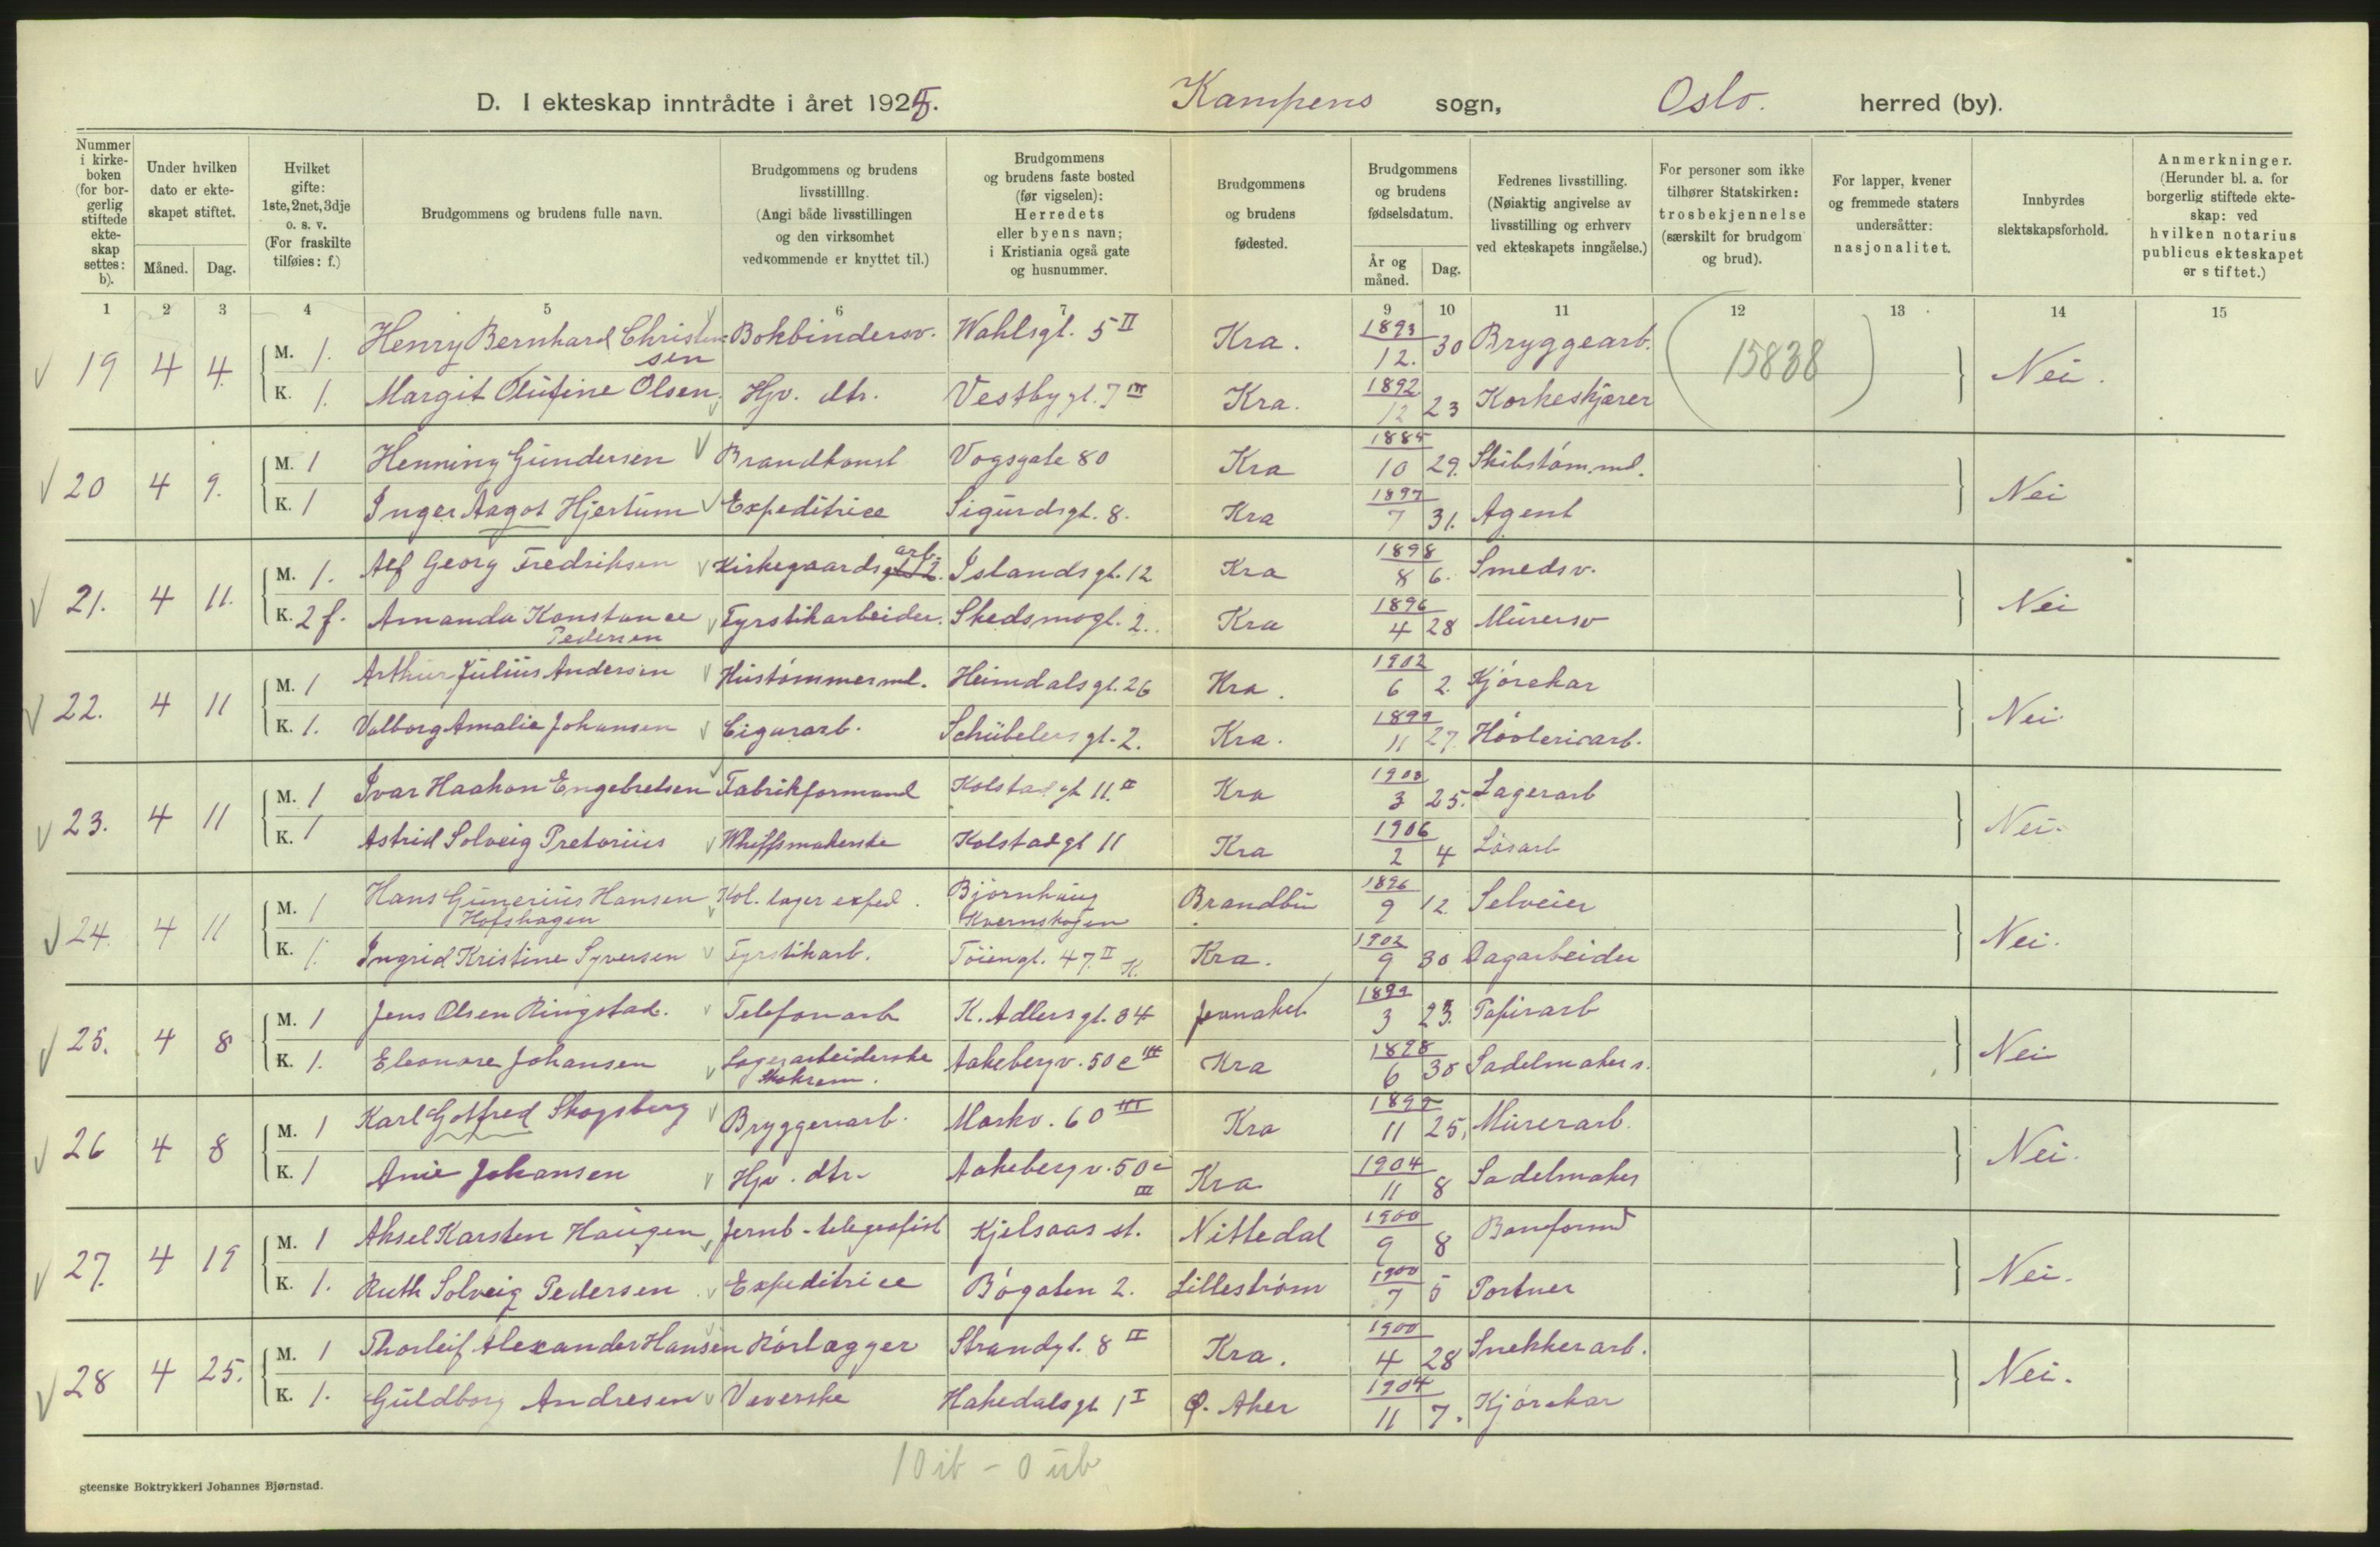 D. I ekteskap inntrådte i året 1925. Kampens sogn, Oslo. herred (by).
Nummer i kirkeboken (for borgerlig stiftede ekteskap settes: b).
Under hvilken dato er ekteskapet stiftet.
Måned. Dag.
Hvilket gifte: 1ste, 2net, 3dje o. s. v. (For fraskilte tilføies: f.)
Brudgommens og brudens fulle navn.
Brudgommens og brudens livsstilllng. (Angi både livsstillingen og den virksomhet vedkommende er knyttet til.)
Brudgommens og brudens faste bosted (før vigselen): Herredets eller byens navn; i Kristiania også gate og husnummer.
Brudgommens og brudens fødested.
Brudgommens og brudens fødselsdatum.
År og måned. Dag.
Fedrenes livsstilling. (Nøiaktig angivelse av livsstilling og erhverv ved ekteskapets inngåelse.)
For personer som ikke tilhører Statskirken: trosbekjennelse (særskilt for brudgom og brud).
For lapper, kvener og fremmede staters undersåtter: nasjonalitet.
Innbyrdes slektskapsforhold.
Anmerkninger. (Herunder bl. a. for borgerlig stiftede ekteskap: ved hvilken notarius publicus ekteskapet er stiftet.)
1 2 3 4 5 6 7 9 10 11 12 13 14 15
19 4 4. M. 1. Henry Bernhard Christensen Bokbindersv. Wahlsgt. 5 II Kra. 1893 12. 30 Bryggearb. 15838 Nei.
K. 1. Margit Olufine Olsen Hjv. dtr. Vestbygt. 7 III Kra. 1892 12 23 Korkeskjærer
20 4 9. M. 1 Henning Gundersen Brandkonst Vogsgate 80 Kra 1885 10 29. Skibstømmd. Nei
K. 1 Inger Aagot Hjertum Expeditrice Sigurdsgt. 8. Kra 1897 7 31. Agent
21. 4 11. M. 1. Alf Georg Fredriksen Kirkegaardsarb. Islandsgt. 12 Kra 1898 8 6. Smedsv. Nei
K. 2 f. Amanda Konstance Pedersen Fyrstikarbeider. Skedsmogt. 2. Kra 1896 4 28 Murersv
22. 4 11 M. 1 Arthur Julius Andersen Hustømmermd. Heimdalsgt. 26 Kra. 1902 6 2. Kjørekar Nei
K. 1. Valborg Amalie Johansen Cigararb. Schübelersgt. 2. Kra. 1899 11 27. Høvleriarb.
23. 4 11 M. 1 Ivar Haakon Engebretsen Fabrikformand Kolstadgt 11. II Kra 3 25. Lagerarb Nei.
K. 1 Astrid Solveig Pretorius Whiffsmakerske Kolstadgt 11 Kra 1906 2 4 Løsarb
24. 4 11 M. 1 Hans Gunerius Hansen Hofshagen Kol. lager exped. Bjørnhaug Kvernskogen Brandbu 1896 9 12 Selveier Nei.
K. 1. Ingrid Kristine Syversen Fyrstikarb. Tøiengt. 47. II K. Kra. 1902 9 30 Dagarbeider
25. 4 8 M. 1 Jens Olsen Ringstad. Telefonarb K. Adlersgt. 34 Jevnaker 1899 3 23. Papirarb Nei
K. 1. Eleonore Johansen Lagerarbeiderske Aakebergv. 50 c III Kra 1898 6 30 Sadelmakers.
26 4 8 M. 1 Karl Gotfred Skogsberg Bryggeriarb. Markv. 60 III Kra 11 25. Murerarb. Nei.
K. 1 Anie Johansen Hjv. dtr. Aakebergv. 50 c III Kra 1904 11 8 Sadelmaker
27. 4 19 M. 1 Aksel Karsten Haugen Jernb-telegrafist Kjelsaas st. Nittedal 1900 9 8 Baneformd Nei.
K. 1. Ruth Solveig Pedersen Expeditrice Bøgaten 2. Lillestrøm 1900 7 5 Portner
28 4 25. M. 1 Thorleif Alexander Hansen Rørlægger Strandgt. 8 II Kra. 1900 4 28 Snekkerarb. Nei.
K. 1. Guldborg Andresen Veverske Hakedalsgt 1 I Ø. Aker 1904 11 7. Kjørekar
10 ib - 0 ub
Steenske Boktrykkeri Johannes Bjørnstad.